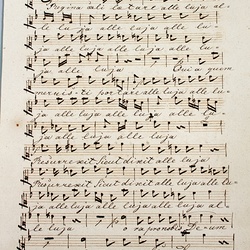 Regina cæli lætare alle luja al-
le luja alle luja alle luja
luja alle luja alle luja alle lu-
ja alle luja Quia quem
meruis-ti portare alle luja alle
luja alle luja alle luja alle
luja alle luja
Resurrexit Sicut dixit alle luja
Resurrexit Sicut dixit alle luja alle lu-
ja alle luja alle luja alle luja al-
le luja ora pro nobis De-um